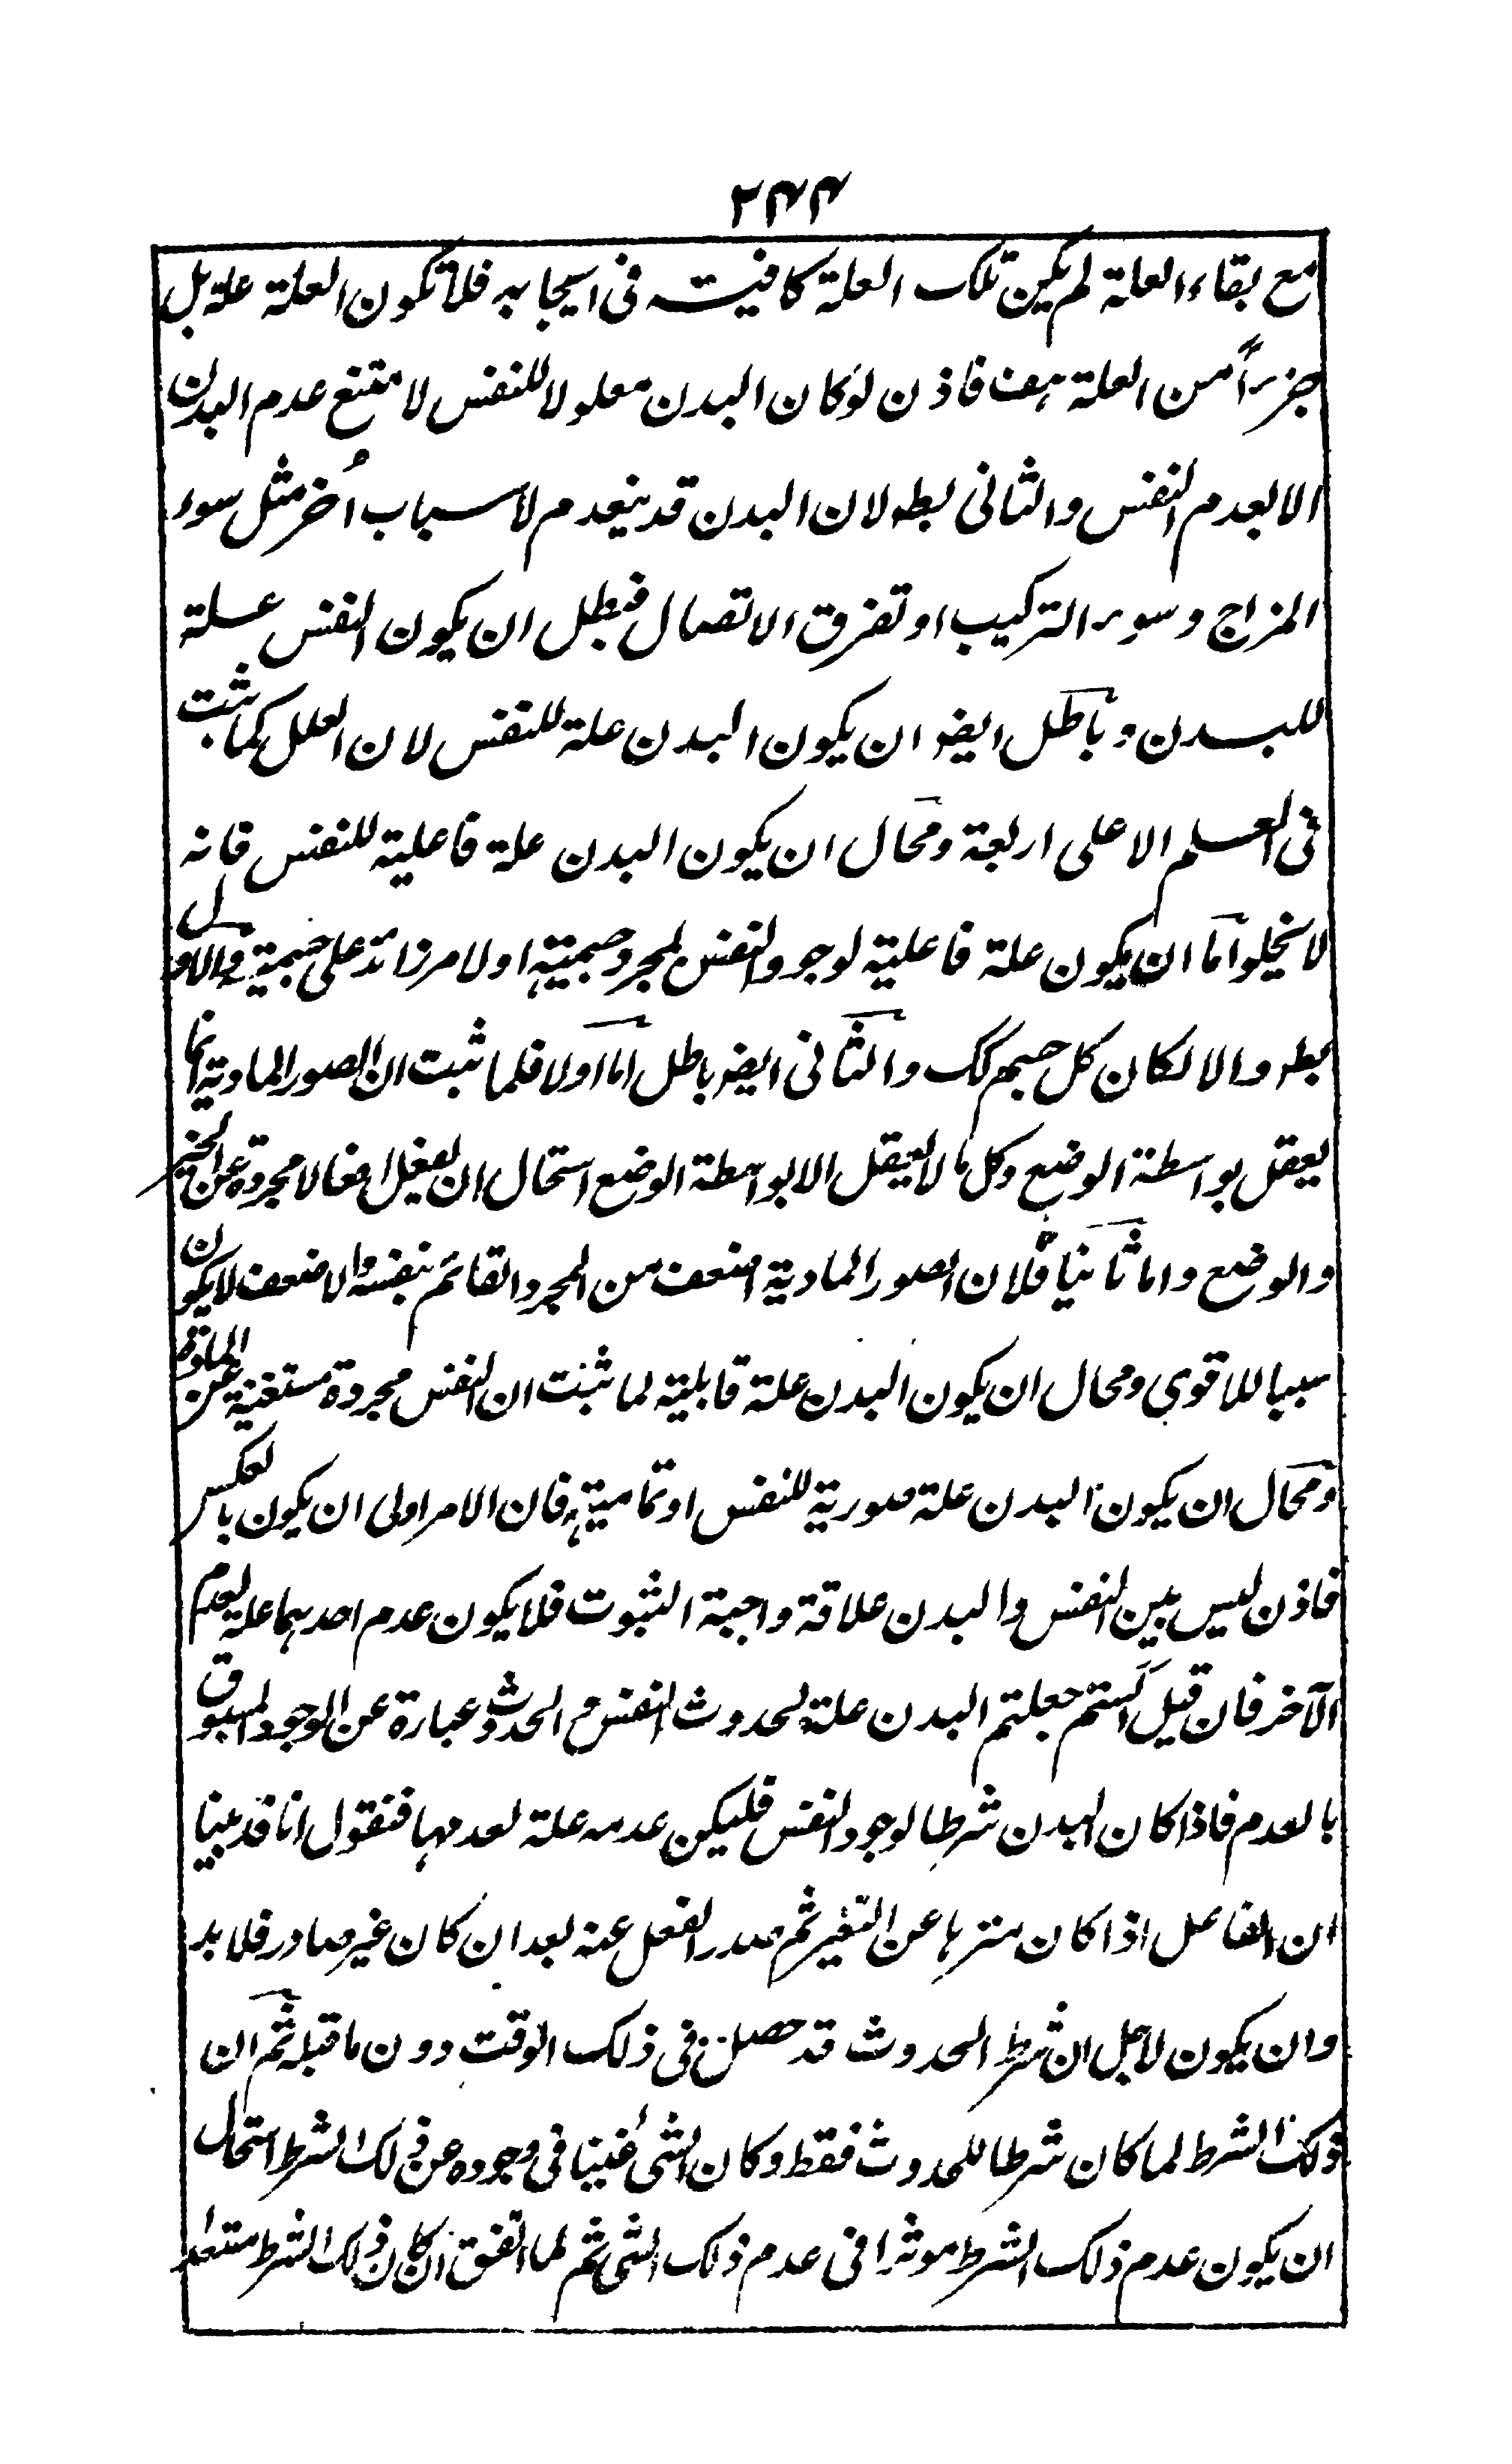 ۲۴۴
مع بقاء العلة لم يكن تلك العلة كافية فى ايجابه فلا تكون العلة علة بل
جزءاً من العلة هف فاذن لو كان البدن معلولا للنفس لامتنع عدم البدن
الا بعدم النفس والثانى بط لان البدن قد ينعدم لأسباب اُخر مثل سوء
المزاج وسوء التركيب او تفرق الاتصال فبطل ان يكون النفس علة
للبدن وباطل ايضا ان يكون البدن علة للنفس لان العلل كما ثبت
فى العلم الاعلى اربعة ومحال ان يكون البدن علة فاعلية للنفس فانه
لا يخلوا اما ان يكون علة فاعلية لوجود النفس لمجرد جسميته او لامر زائد على جسميته والاول
بط والا لكان كل جسم كك والثانى ايض باطل اما اولا فلما ثبت ان الصور المادية انما
يعقل بواسطة الوضع وكل ما لا يعقل الا بواسطة الوضع استحال ان يفعل افعالا مجردة عن الحيز
والوضع واما ثانيا فلان الصور المادية اضعف من المجرد القائم بنفسه والاضعف لا يكون
سببا للاقوى ومحال ان يكون البدن علة قابلية لما ثبت ان النفس مجردة مستغنية عن المادة
ومحال ان يكون البدن علة صورية للنفس او تمامية فان الامر اولى ان يكون بالعكس
فاذن ليس بين النفس والبدن علاقة واجبة الثبوت فلا يكون عدم احدهما علة لعدم
الآخر فان قيل ألستم جعلتم البدن علة لحدوث النفس والحدوث عبارة عن الوجود المسبوق
بالعدم فاذا كان البدن شرطا لوجود النفس فليكن عدمه علة لعدمها فنقول انا قد بينا
ان الفاعل اذا كان منزها عن التغير ثم صدر الفعل عنه بعد ان كان غير صادر فلا بد
وان يكون لاجل ان شرط الحدوث قد حصل فى ذلك الوقت دون ما قبله ثم ان
ذلك الشرط لما كان شرطا للحدوث فقط وكان الشئ غنيا فى وجوده عن ذلك الشرط استحال
ان يكون عدم ذلك الشرط موثرا فى عدم ذلك الشئ ثم لما اتفق ان كان ذلك الشرط مستعدا